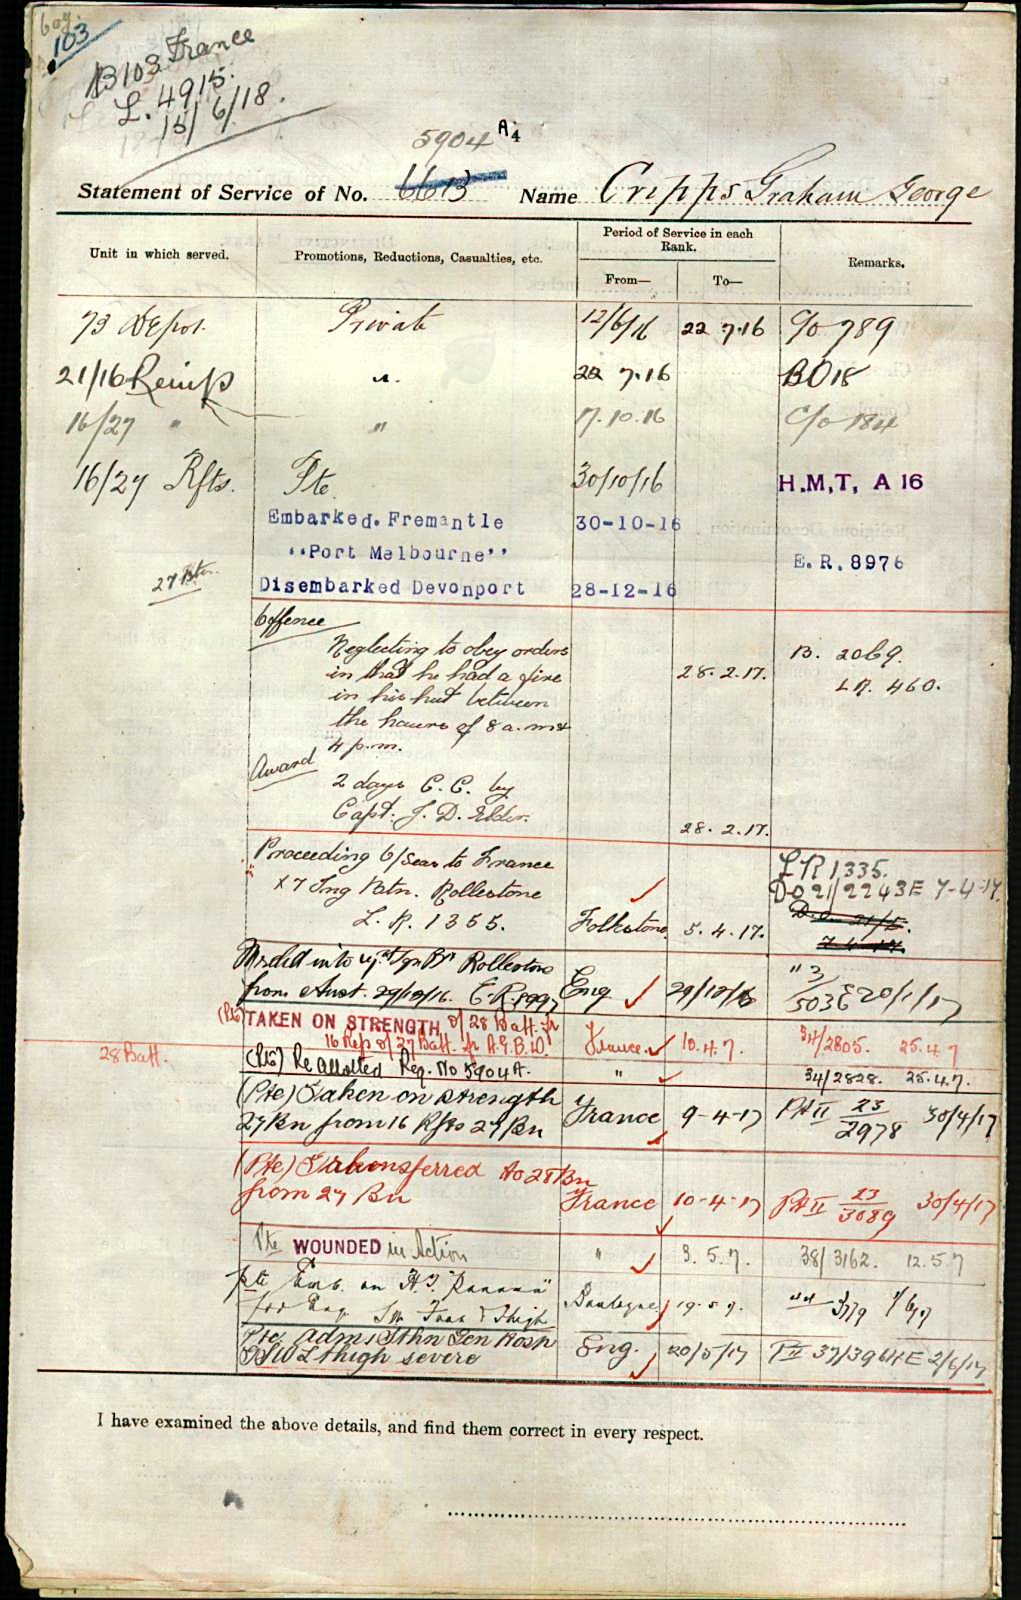 103
B103 France
L. 4915.
15/6/18.
5904 A
4
Statement of Service of No. 6613 Name Cripps Graham George
Unit in which served.
Promotions, Reductions, Casualties, etc.
Period of Service in each Rank.
From—
To—
Remarks.
73 Depot. Private 12/6/16 22 7.16 C/o 789
21/16 Reinfs " 22 7.16 BO18
16/27 " " 17.10.16 C/o 184
16/27 Rfts. Pte. 30/10/16 H.M,T, A 16
Embarked. Fremantle 30-10-16
"Port Melbourne" E.R.8976
27 Btn. Disembarked Devonport 28-12-16
Offence
Neglecting to obey orders B. 2069.
in that he had a fire 28.2.17. LR. 460.
in his hut between
the hours of 8 a.m &
4 p.m.
Award
2 days C.C. by
Capt. J. D. Elder. 28.2.17.
Proceeding O/Seas to France LR 1335.
x 7 Tng Btn. Rollestone DO21/2243E 7-4-17.
L.R. 1355. Folkestone. 5.4.17.
Mrchd into 7 Tgn Bn Rollestone "3
from Aust. 29/12/16. Eng 29/12/16 /5036E 20/1/17
(Pte) TAKEN ON STRENGTH of 28 Batt. fr
16 Rep of 27 Batt. fr A.G.B.D. France. 10.4.7. 34/2805. 25.4.7
28 Batt.
(Pte) Re allotted Reg. No 5904A. " 34/2828. 25.4.7.
(Pte) Taken on strength
27 Bn from 16 Rfts 27/Bn France 9-4-17 Pt II 23/2978 30/4/17
(Pte) Transferred to 28 Bn
from 27 Bn France 10-4-17 Pt II 23/3089 30/4/17
Pte WOUNDED in Action " 3.5.7. 38/3162. 12.5.7
Pte Emb. on H.S. "Panama"
for Eng. Boulogne 19.5.7.
Pte. adm. Sthn Gen Hosp
GSW L thigh severe Eng. 20/5/17 Pt II 37/3964E 2/6/17
I have examined the above details, and find them correct in every respect.